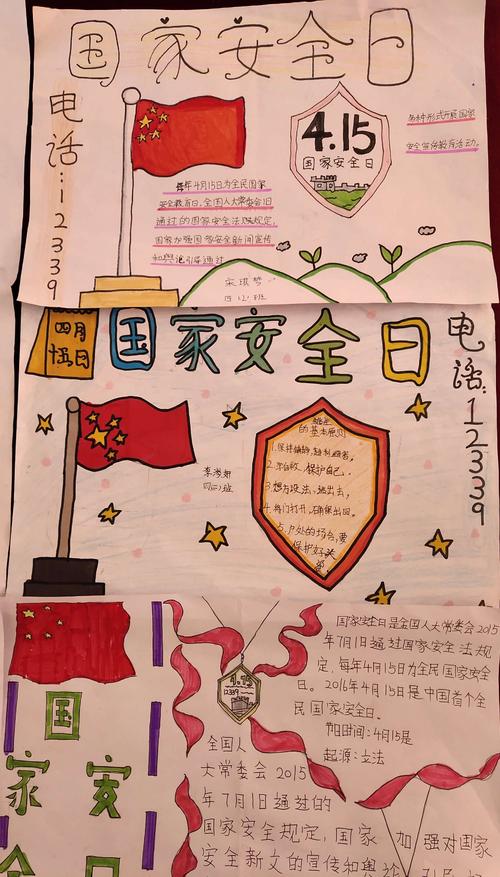 国家安全日
电话：12339
4.15
国家安全日
多种形式开展国家
安全宣传教育活动。
每年4月15日为全民国家
安全教育日。全国人大常委会
通过的国家安全法及规定，
国家加强国家安全新闻宣传
和舆论引导通过
宋琪梦
四.(2).班
四月
十五日
国家安全日
电话：12339
的基本原则
1.保持镇静，
2.保护自己.
3.想方设法，逃出去，
4.将门打开，确保出口。
5.户外的场合，要
保护好头
李涔
四(二)班
国家安全日
4.15
12339
国家安全日是全国人大常委会2015
年7月1日通过国家安全法规
定，每年4月15日为全民国家安全
日。2016年4月15日是中国首个全
民国家安全日。
节日时间：4月15是
起源：立法
全国人
大常委会2015
年7月1日通过的
国家安全规定，国家加强对国家
安全新文的宣传和舆论引导